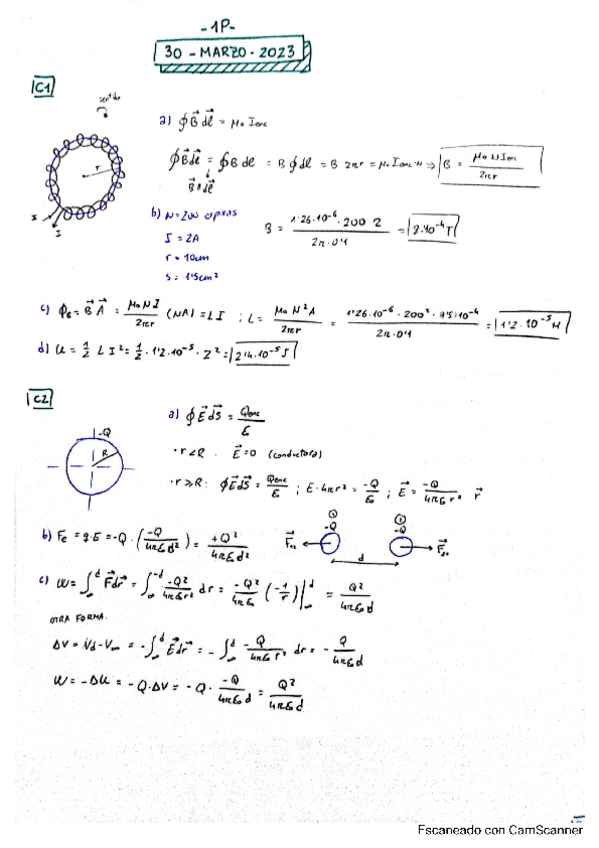 -1P-
30 - MARZO - 2023
C1
sentido
r
I
I
a) ∮B⃗ dl⃗ = μ₀ I enc
∮B⃗dl⃗ = ∮B dl = B ∮dl = B 2πr = μ₀ I enc·N → B = μ₀ N I enc / 2πr
B⃗ ∥ dl⃗
b) N = 200 espiras
I = 2A
r = 10cm
S = 1'5cm²
B = 1'26·10⁻⁶·200·2 / 2π·0'1 = 8·10⁻⁴ T
c) Φ_B = B⃗ A⃗ = μ₀ N I / 2πr (NA) = L I ; L = μ₀ N² A / 2πr = 1'26·10⁻⁶·200²·1'5·10⁻⁴ / 2π·0'1 = 1'2·10⁻⁵ H
d) U = 1/2 L I² = 1/2 · 1'2·10⁻⁵ · 2² = 2'4·10⁻⁵ J
C2
-Q
R
a) ∮E⃗ dS⃗ = Q enc / ε
· r < R . E⃗ = 0 (conductora)
· r ≥ R: ∮E⃗ dS⃗ = Q enc / ε ; E·4πr² = -Q / ε ; E⃗ = -Q / 4πεr² r⃗
① -Q
② -Q
F⃗₁₂
F⃗₂₁
d
b) Fe = q·E = -Q · (-Q / 4πε₀d²) = +Q² / 4πε₀d²
c) W = ∫_∞^d F⃗dr⃗ = ∫_∞^d -Q² / 4πε₀r² dr = -Q² / 4πε₀ (-1/r)|_∞^d = Q² / 4πε₀d
OTRA FORMA.
ΔV = Vd - V∞ = -∫_∞^d E⃗dr⃗ = -∫_∞^d -Q / 4πε₀r² dr = -Q / 4πε₀d
W = -ΔU = -Q·ΔV = -Q · -Q / 4πε₀d = Q² / 4πε₀d
Escaneado con CamScanner